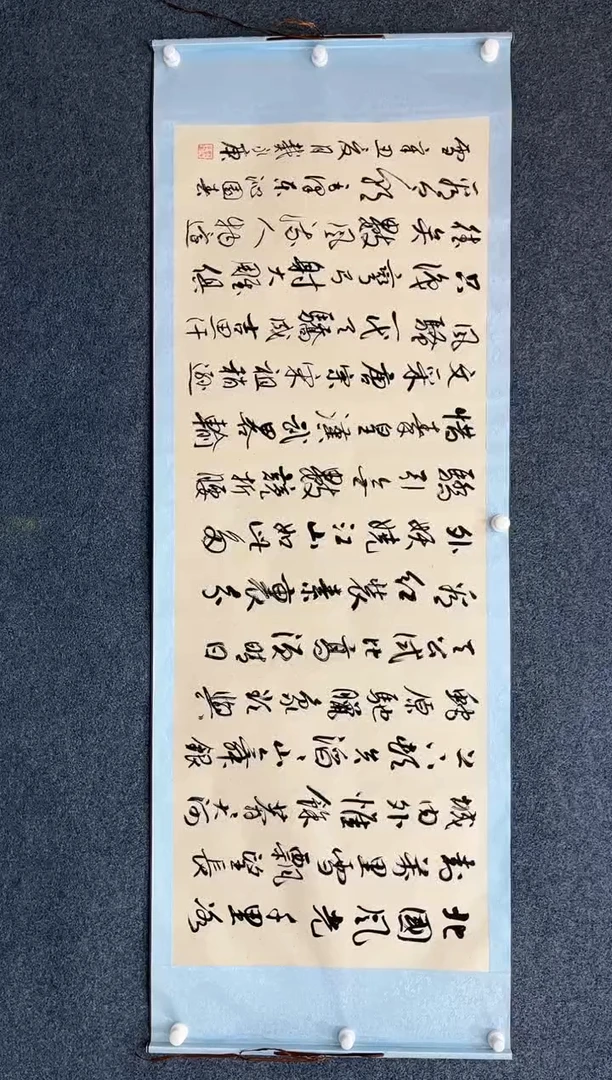 北國风光千里冰
封萬里雪飄望長
城内外惟餘莽〻大河
上下頓失滔〻山舞銀
蛇原馳臘象欲與
天公試比高須晴日
看紅裝素裹分
外妖嬈江山如此多
嬌引無數競折腰
惜秦皇漢武略輸
文采唐宗宋祖稍遜
风騷一代天驕成吉思汗
只識彎弓射大雕俱
往矣數风流人物還
看今朝毛澤东沁園春
雪辛丑夏月戴永康